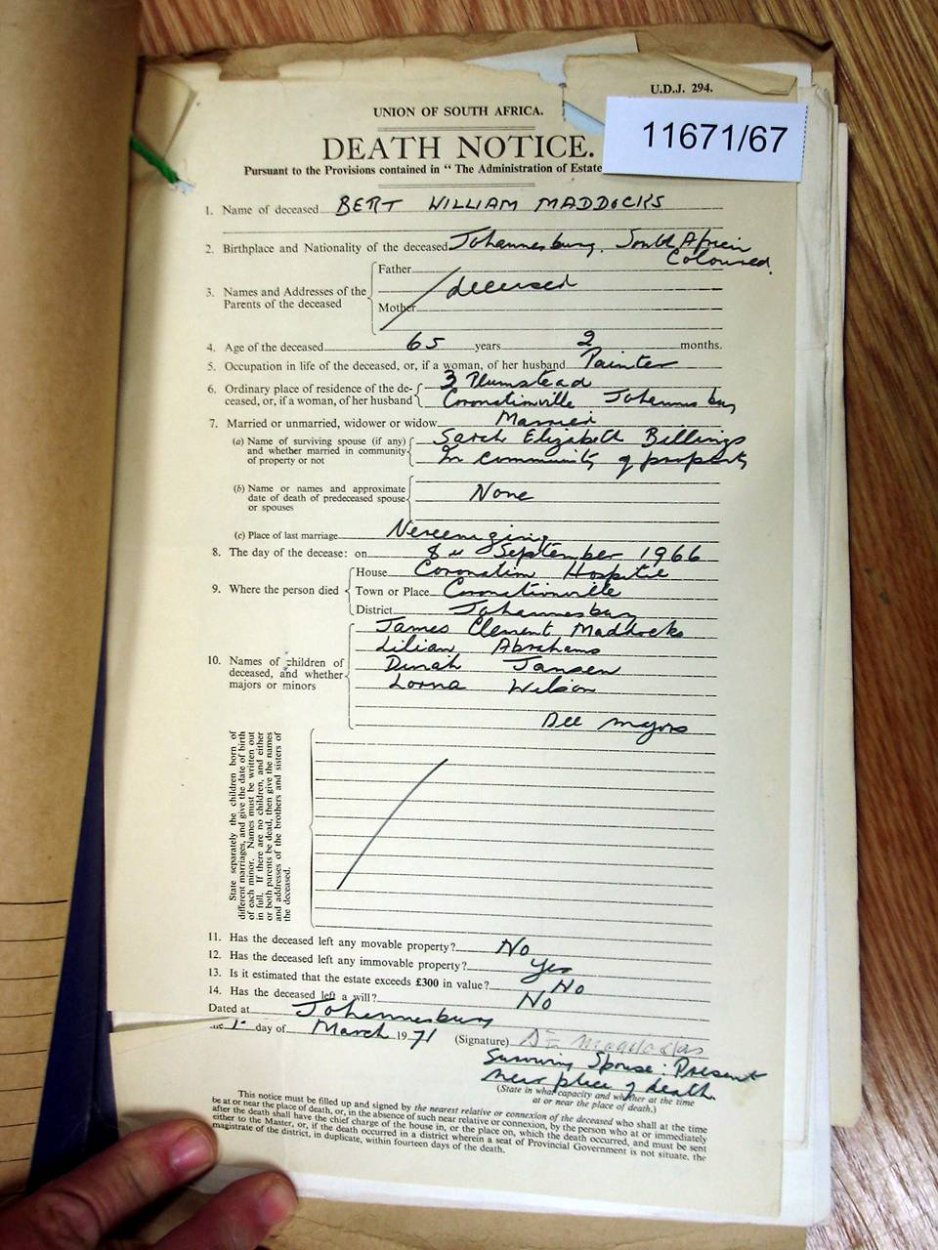 U.D.J. 294.
UNION OF SOUTH AFRICA.
11671/67
DEATH NOTICE.
Pursuant to the Provisions contained in “ The Administration of Estate
1. Name of deceased BERT WILLIAM MADDOCKS
2. Birthplace and Nationality of the deceased Johannesburg. South African
Coloured.
3. Names and Addresses of the Parents of the deceased
Father
deceased
Mother
4. Age of the deceased 65 years 2 months.
5. Occupation in life of the deceased, or, if a woman, of her husband Painter
6. Ordinary place of residence of the de-
ceased, or, if a woman, of her husband
3 Plumstead
Coronationville Johannesburg
7. Married or unmarried, widower or widow Married
(a) Name of surviving spouse (if any)
and whether married in community
of property or not
Sarah Elizabeth Billings
In community of property
(b) Name or names and approximate
date of death of predeceased spouse
or spouses
None
(c) Place of last marriage Vereeniging
8. The day of the decease: on 8th September 1966
9. Where the person died
House Coronation Hospital
Town or Place Coronationville
District Johannesburg
10. Names of children of
deceased, and whether
majors or minors
James Clement Maddocks
Lilian Abrahams
Dinah Jansen
Lorna Wilson
All majors
State separately the children born of
different marriages, and give the date of birth
of each minor. Names must be written out
in full. If there are no children, and either
or both parents be dead, then give the names
and addresses of the brothers and sisters of
the deceased.
11. Has the deceased left any movable property? No
12. Has the deceased left any immovable property? Yes
13. Is it estimated that the estate exceeds £300 in value? No
14. Has the deceased left a will? No
Dated at Johannesburg
day of March 1971
(Signature)
Surviving Spouse: Present
near place of death.
(State in what capacity and whether at the time
at or near the place of death.)
This notice must be filled up and signed by the nearest relative or connexion of the deceased who shall at the time
be at or near the place of death, or, in the absence of such near relative or connexion, by the person who at or immediately
after the death shall have the chief charge of the house in, or the place on, which the death occurred, and must be sent
either to the Master, or, if the death occurred in a district wherein a seat of Provincial Government is not situate, the
magistrate of the district, in duplicate, within fourteen days of the death.